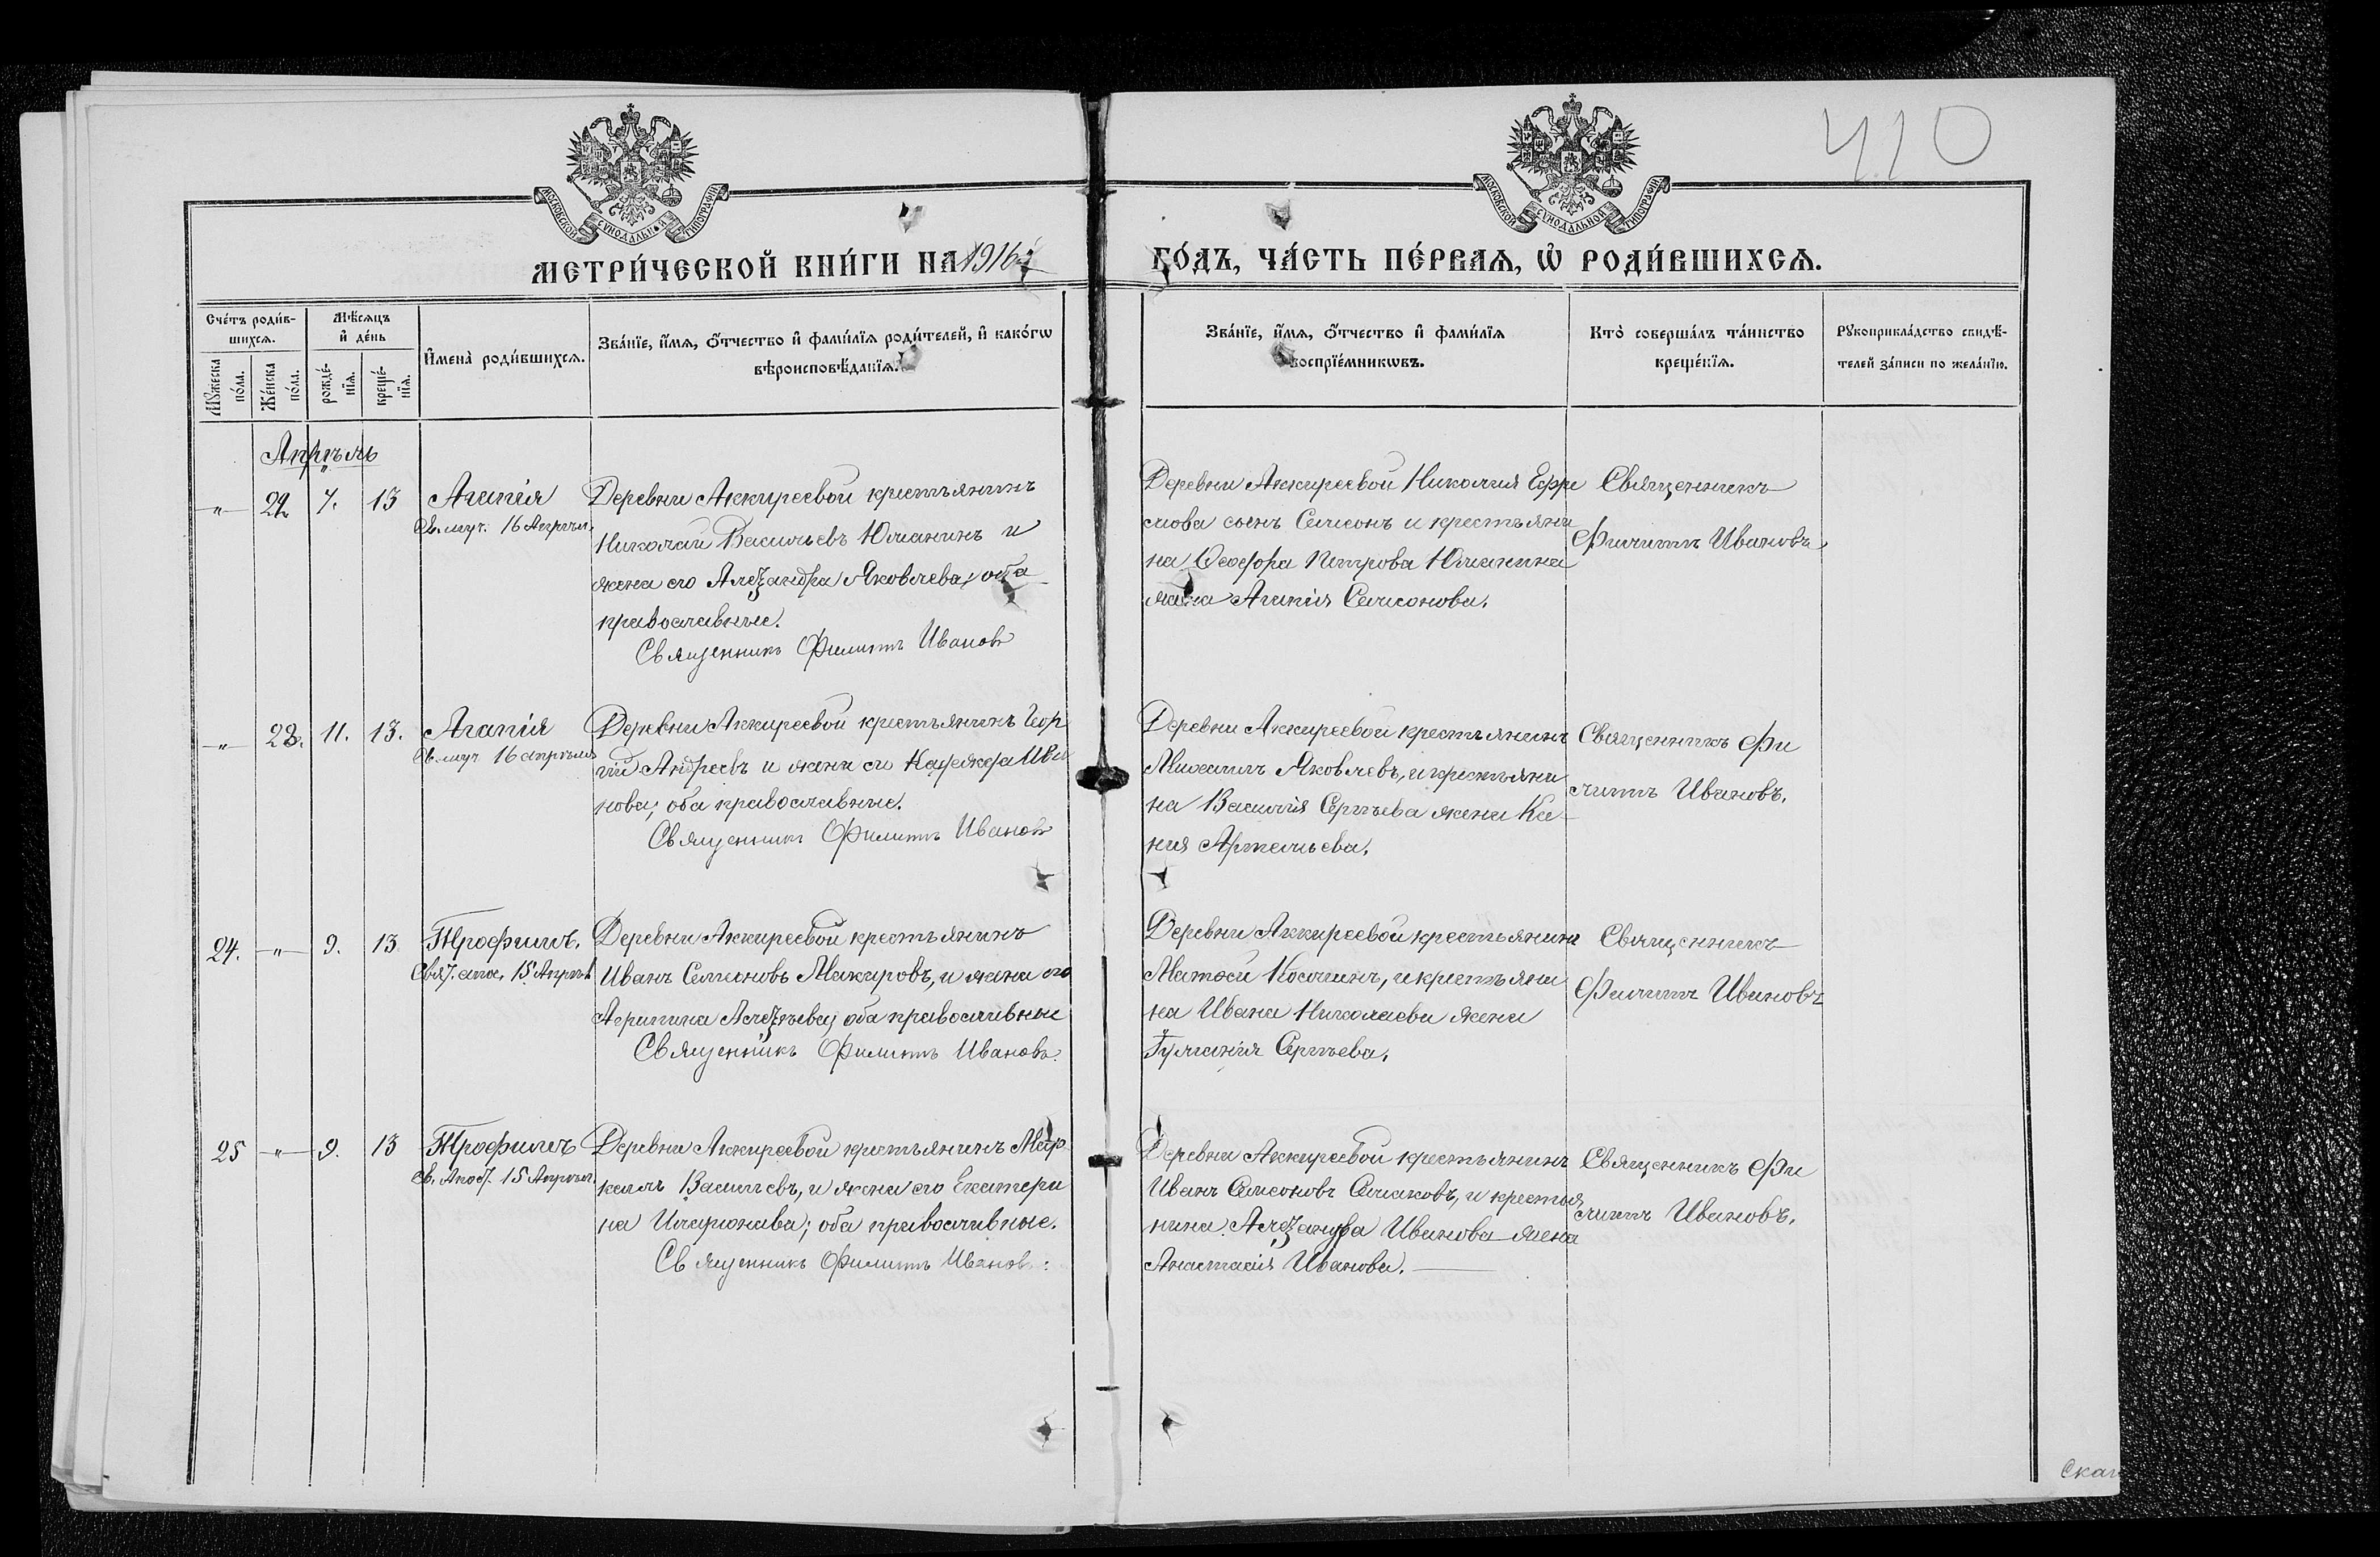 410
МОСКОВСКОЙ СѴНОДАЛЬНОЙ ТИПОГРАФІИ
МОСКОВСКОЙ СѴНОДАЛЬНОЙ ТИПОГРАФІИ
МЕТРИ́ЧЕСКОЙ КНИ́ГИ НА 1916й ГО́ДЪ, ЧА́СТЬ ПЕ́РВАѦ, Ѡ҆ РОДИ́ВШИХСѦ.
Сче́тъ роди́в-
шихсѧ.
Мꙋ́жеска
по́ла.
Же́нска
по́ла.
Мѣ́сѧцъ
и҆ де́нь
рожде́-
нїѧ.
креще́-
нїѧ.
И҆мена̀ роди́вшихсѧ.
Зва́нїе, и҆́мѧ, ѻ҆́тчество и҆ фами́лїѧ роди́телей, и҆ како́гѡ
вѣроисповѣ́данїѧ.
Зва́нїе, и҆́мѧ, ѻ҆́тчество и҆ фами́лїѧ
воспрїе́мникѡвъ.
Кто̀ соверша́лъ та́инство
креще́нїѧ.
Рꙋкоприкла́дство свидѣ́-
телей за́писи по жела́нїю.
Апрѣль
-"- 22. 7. 13 Агапія
Св. муч. 16 Апрѣл.
Деревни Аккиреевой крестьянинъ
Николай Васильевъ Юманинъ и
жена его Алеѯандра Яковлева, оба
православные.
Священникъ Филиппъ Ивановъ
Деревни Аккиреевой Николая Ефи
мова сынъ Симеонъ и крестьяни
на Ѳеодора Петрова Юманина
жена Агапія Симеонова.
Священникъ
Филиппъ Ивановъ
-"- 23. 11. 13. Агапія
Св. муч. 16 апрѣля
Деревни Аккиреевой крестьянинъ Геор
гій Андреевъ и жена его Ива
нова; оба православные.
Священникъ Филиппъ Ивановъ
Деревни Аккиреевой крестьянинъ
Михаилъ Яковлевъ, и крестьяни
на Василія Сергѣева жена Кс
нія Артемьева.
Священникъ Фи
липпъ Ивановъ.
24. -"- 9. 13 Трофимъ.
Свят. апос. 15 Апрѣл
Деревни Аккиреевой крестьянинъ
Иванъ Симеоновъ Макаровъ, и жена его
Агрипина Алеѯѣева; оба православные
Священникъ Филиппъ Ивановъ.
Деревни Аккиреевой крестьянинъ
Матѳей Косминъ, и крестьяни
на Ивана Николаева жена
Іуліанія Сергѣева.
Священникъ
Филиппъ Ивановъ
25 -"- 9. 13 Трофимъ
Св. Апост. 15 Апрѣл.
Деревни Аккиреевой крестьянинъ Мар
келлъ Васильевъ, и жена его Екатери
на Иларіонова; оба православные.
Священникъ Филиппъ Ивановъ.
Деревни Аккиреевой крестьянинъ
Иванъ Симеоновъ Симаковъ, и крестья
нина Алеѯандра Иванова жена
Анастасія Иванова.
Священникъ Фи
липпъ Ивановъ.
Скан